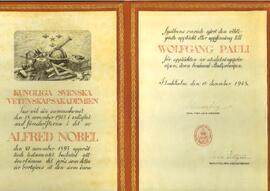 KUNGLIGA SVENSKA
VETENSKAPSAKADEMIEN
har vid sin sammankomst
den 15 november 1945 i enlighet
med föreskrifterna i det av
ALFRED NOBEL
den 27 november 1895 upprät-
tade testamentet beslutat att
överlämna det pris som detta
år bortgives åt den som inom
fysikens område gjort den vikti-
gaste upptäckt eller uppfinning till
WOLFGANG PAULI
för upptäckten av uteslutningsprin-
cipen, även benämnd Pauliprincipen.
Stockholm den 10 december 1945.